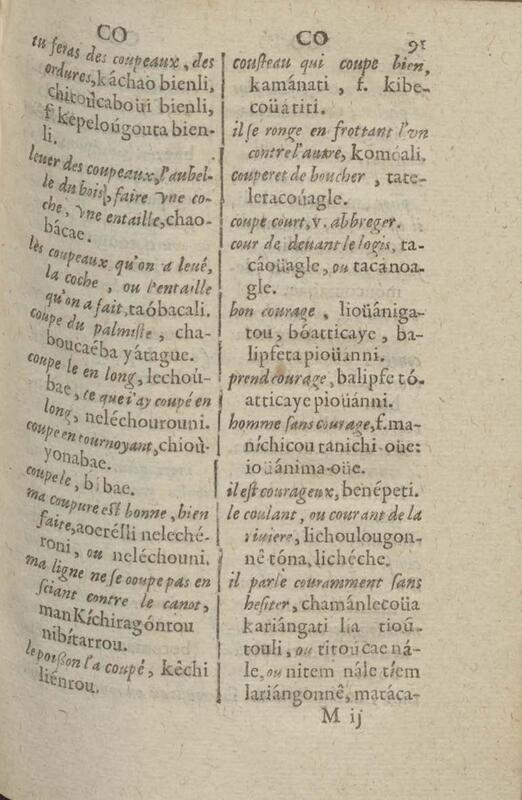 CO
tu feras des coupeaux, des
ordures, káchao bienli,
chitoûcaboüi bienli,
f. képeloúgouta bien-
li.
leuer des coupeaux, l'aubel-
le du bois, faire vne co-
che, vne entaille, chao-
bácae.
lès coupeaux qu'on a leué,
la coche, ou l'entaille
qu'on a fait, taóbacali.
coupe du palmiste, cha-
boucaéba yátague.
coupe le en long, lechoú-
bae, ce que i'ay coupé en
long, neléchourouni.
coupe en tournoyant, chioù-
yonabae.
coupe le, bíbae.
ma coupure est bonne, bien
faite, aoerélli neleché-
roni, ou neléchouni.
ma ligne ne se coupe pas en
sciant contre le canot,
man Kíchiragóntou
nibítarrou.
le poisson l'a coupé, kêchi
liénrou.
CO 91
cousteau qui coupe bien,
kamánati, f. kibe-
coüátiti.
il se ronge en frottant l'vn
contre l'autre, koméali.
couperet de boucher, tate-
leracoüagle.
coupe court, v. abbreger.
cour de deuant le logis, ta-
cáoüagle, ou tacánoa-
gle.
bon courage, lioüániga-
tou, bóatticaye, ba-
lipfeta pioüánni.
prend courage, balipfe tó-
atticaye pioüánni.
homme sans courage, f. ma-
níchicou tanichi-oüe:
ioüánima-oüe.
il est courageux, benépeti.
le coulant, ou courant de la
riuiere, lichoulougon-
nê tóna, lichéche.
il parle couramment sans
hesiter, chamánlecoüa
kariángati lia tioú-
touli, ou titoúcae ná-
le, ou nitem nále tíem
lariángonnê, matáca-
M ij